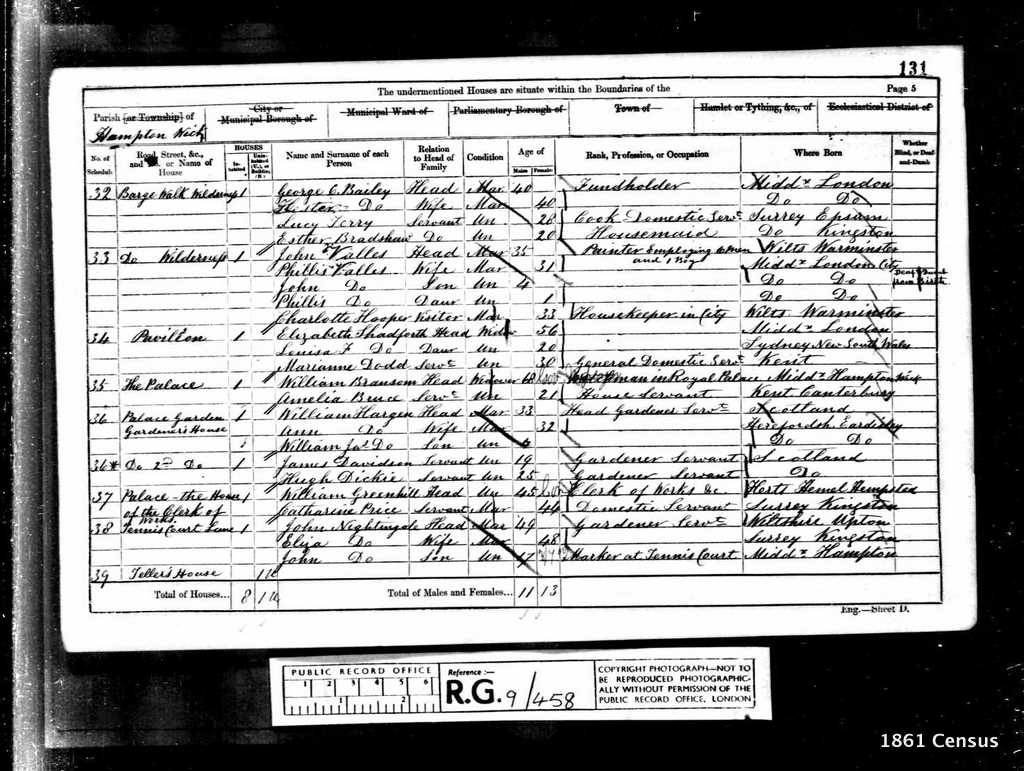 131
The undermentioned Houses are situate within the Boundaries of the Page 5
Parish (or Township) of City or Municipal Borough of Municipal Ward of Parliamentary Borough of Town of Hamlet or Tything, &c., of Ecclesiastical District of
Hampton Wick
No. of Schedule Road, Street, &c., and No. or Name of House HOUSES Inhabited Uninhabited (U.), or Building (B.) Name and Surname of each Person Relation to Head of Family Condition Age of Males Females Rank, Profession, or Occupation Where Born Whether Blind, or Deaf-and-Dumb
32 Barge Walk 1 George C. Bailey Head Mar 40 Fundholder Middx London
Hester Do Wife Mar 40 Do Do
Lucy Terry Servant Un 28 Cook Domestic Servt Surrey Epsom
Esther Bradshaw Do Un 20 Housemaid Do Kingston
33 Do 1 John Valles Head Mar 35 Painter Employing men and 1 Boy Wilts Warminster
Phillis Valles Wife Mar 31 Middx London City
John Do Son Un 4 Do Do Deaf & Dumb from Birth
Phillis Do Daur Un 1 Do Do
Charlotte Hooper Visitor Mar 33 Housekeeper in City Wilts Warminster
34 Pavilion 1 Elizabeth Shadforth Head Widow 56 Middx London
Louisa F Do Daur Un 20 Sydney New South Wales
Marianne Dodd Servt Un 30 General Domestic Servt Kent
35 The Palace 1 William Bransom Head Widower 68 Watchman in Royal Palace Middx Hampton Wick
Amelia Bruce Servt Un 21 House Servant Kent Canterbury
36 Palace Garden 1 William Hargen Head Mar 33 Head Gardener Servt Scotland
Gardener's House Ann Do Wife Mar 32 Herefordsh. Eardisley
William Jas Do Son Un 4 Do Do
36* Do 2nd Do 1 James Davidson Servant Un 19 Gardener Servant Scotland
Hugh Dickie Servant Un 25 Gardener Servant Do
37 Palace - the House 1 William Greenhill Head Un 45 Clerk of Works &c Herts Hemel Hempsted
of the Clerk of Works. Catharine Price Servant Mar 44 Domestic Servant Surrey Kingston
38 Tennis Court Lane 1 John Nightingale Head Mar 49 Gardener Servt Wiltshire Upton
Eliza Do Wife Mar 48 Surrey Kingston
John Do Son Un 17 Marker at Tennis Court Middx Hampton
39 Teller's House 1u
Total of Houses... 8 1u Total of Males and Females... 11 13
Eng.—Sheet D.
PUBLIC RECORD OFFICE
1 2 3 4 5 6
1 2
Reference :-
R.G. 9/458
COPYRIGHT PHOTOGRAPH—NOT TO
BE REPRODUCED PHOTOGRAPHIC-
ALLY WITHOUT PERMISSION OF THE
PUBLIC RECORD OFFICE, LONDON
1861 Census